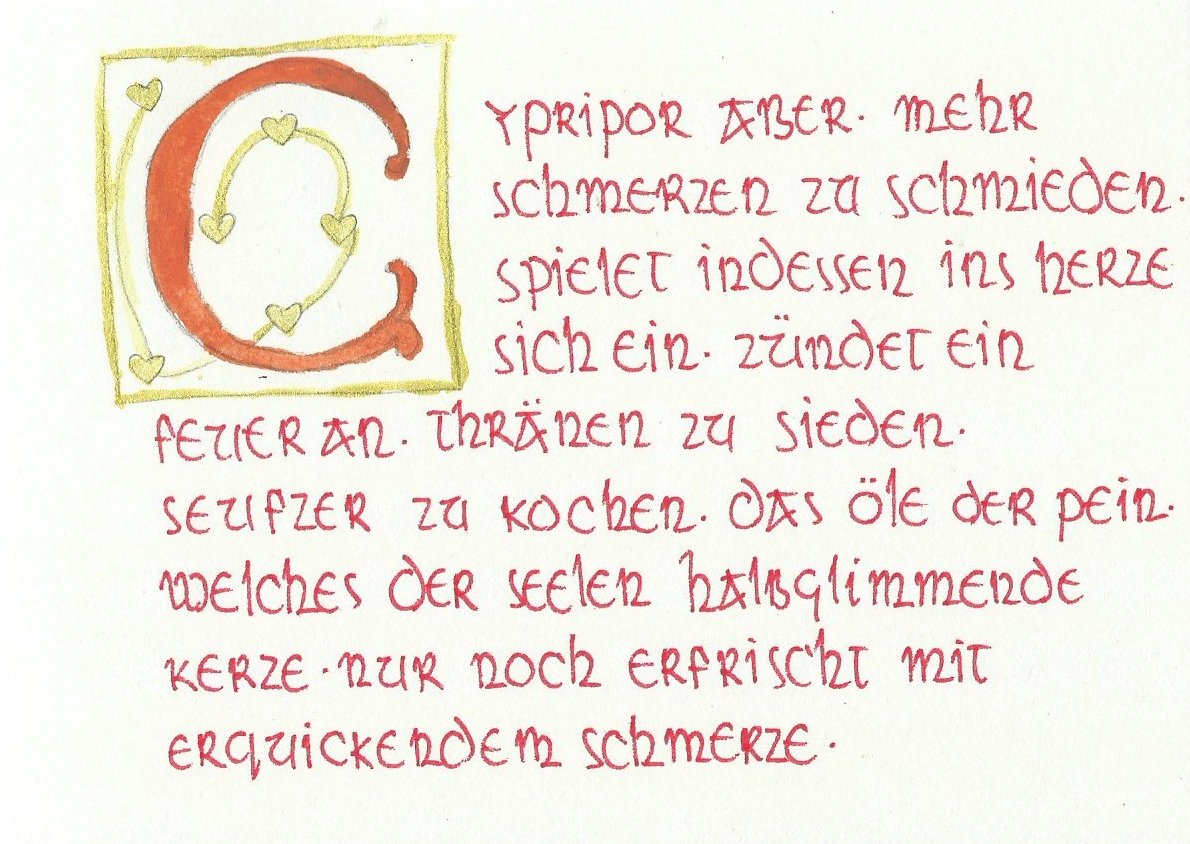 Cypripor aber. mehr
schmerzen zu schmieden.
spielet indessen ins herze
sich ein. zündet ein
feuer an. thränen zu sieden.
seufzer zu kochen. das öle der pein.
welches der seelen halbglimmende
kerze. nur noch erfrischt mit
erquickendem schmerze.